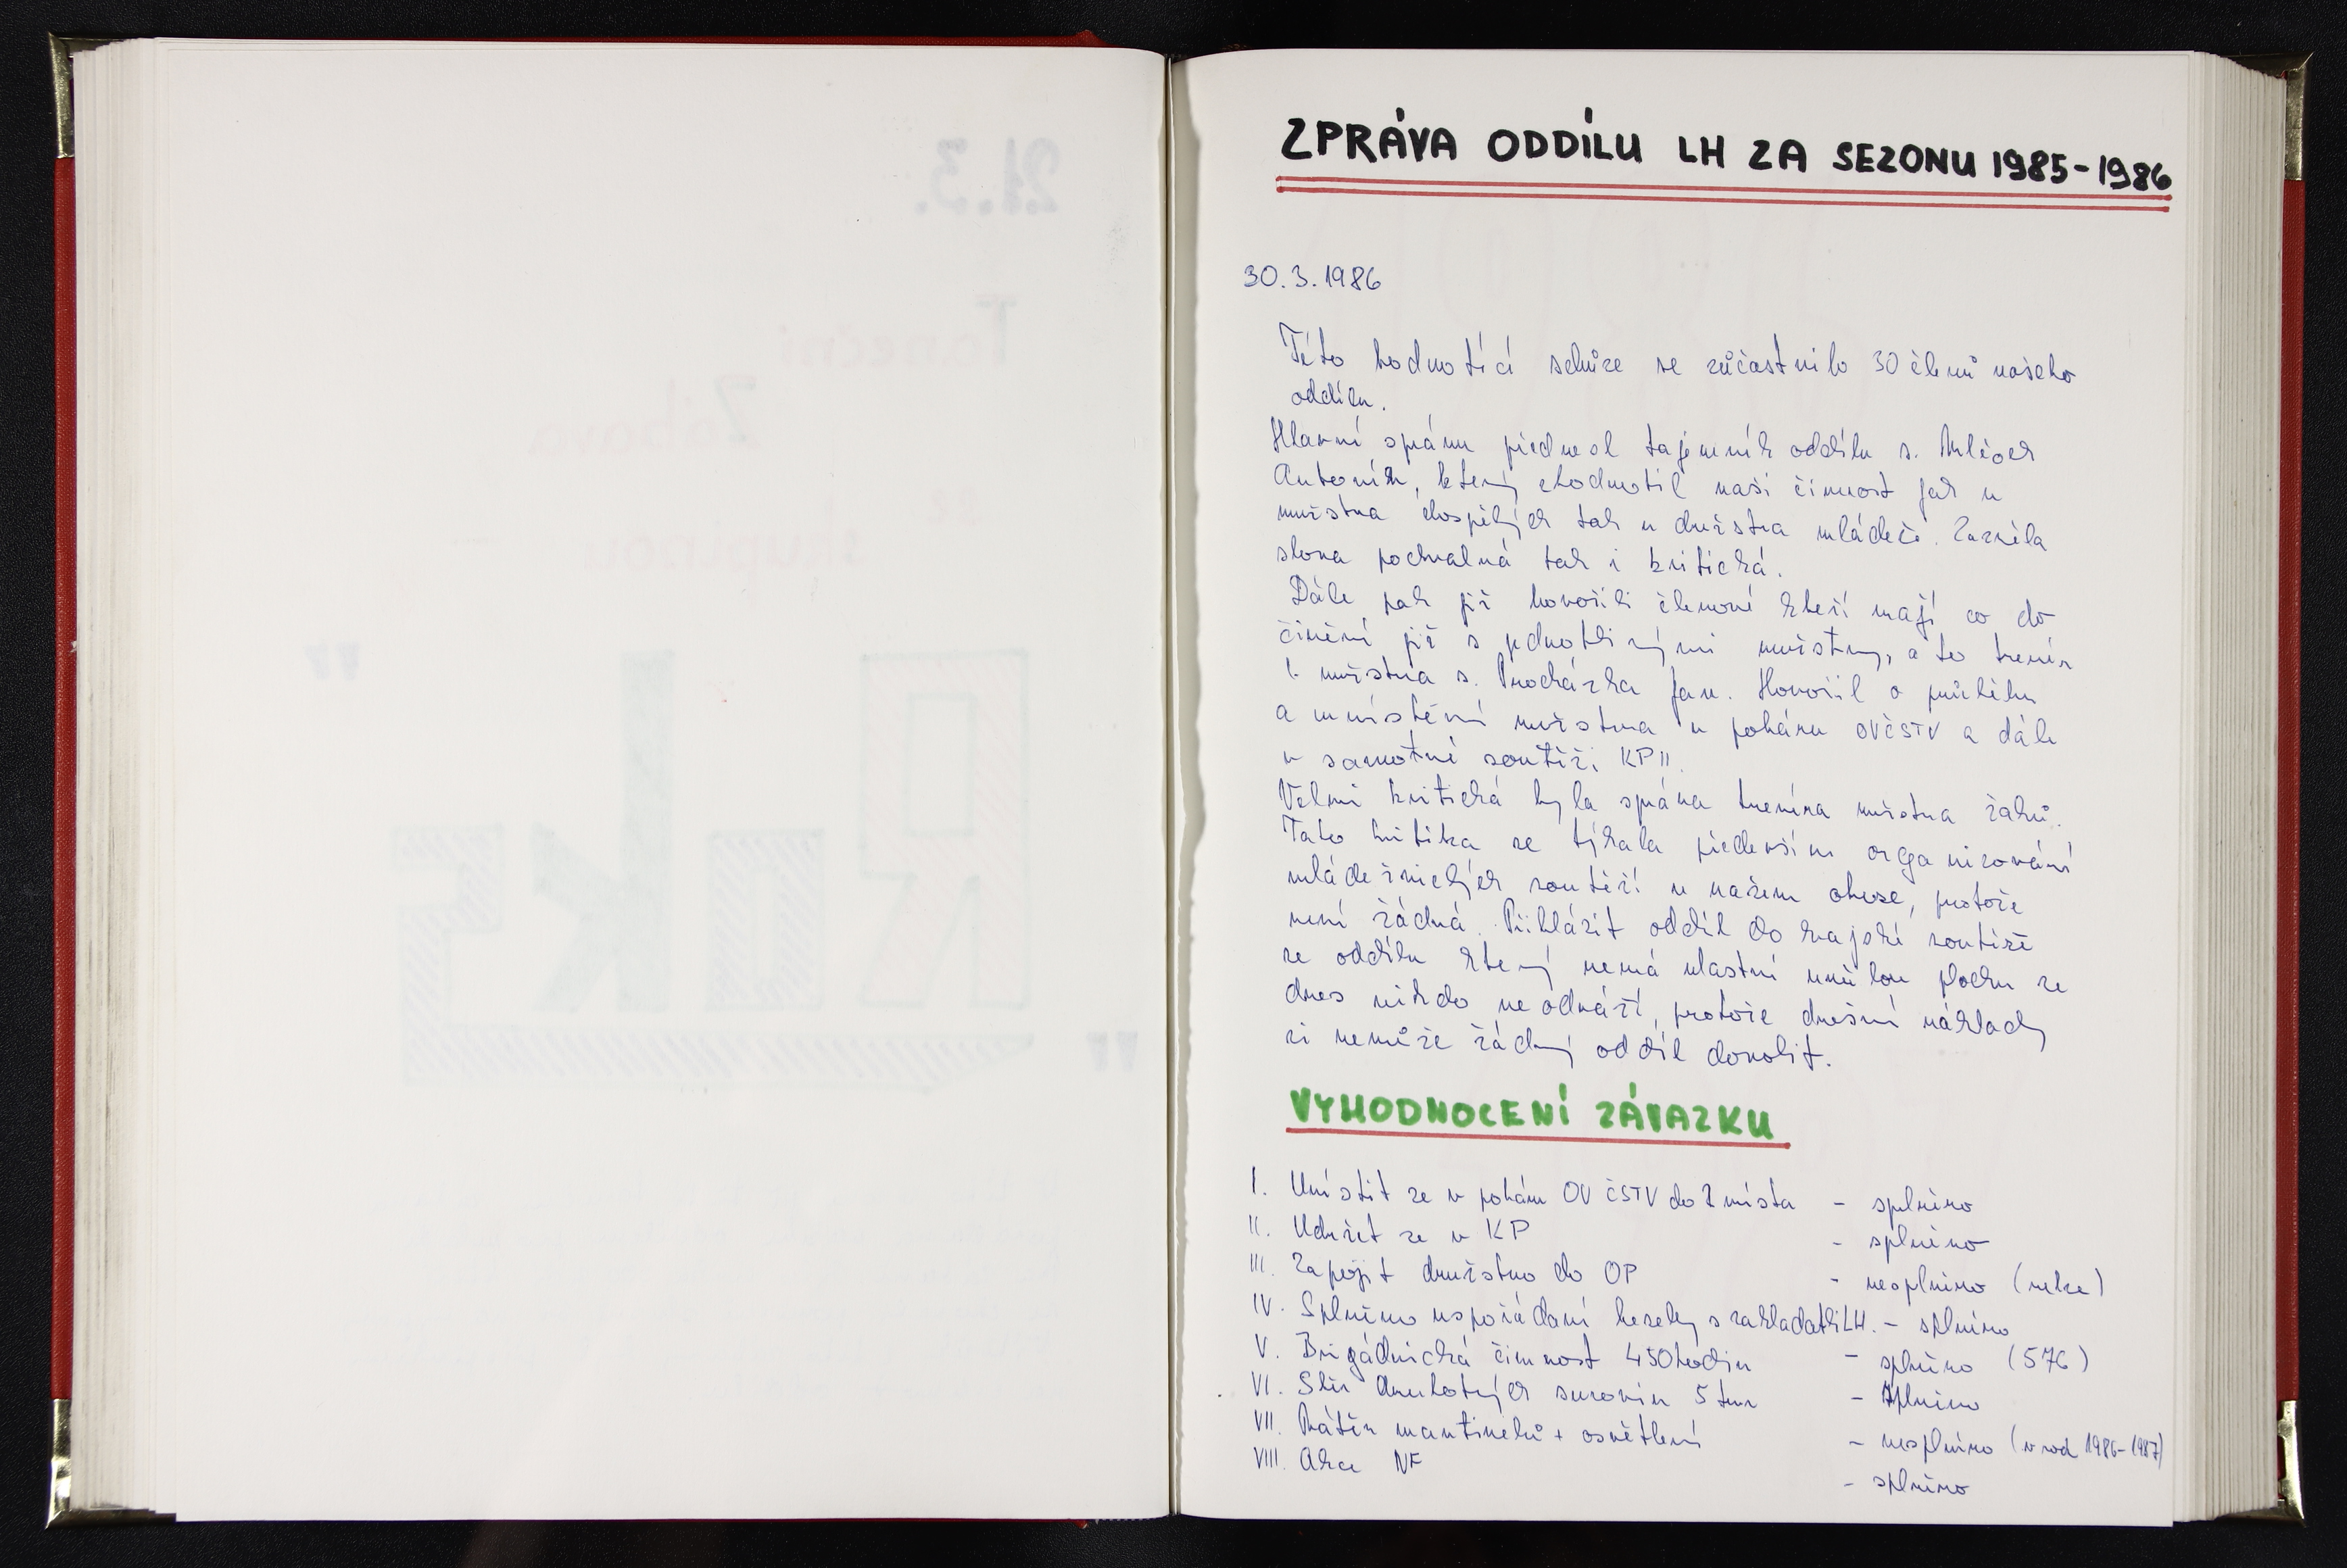 ZPRÁVA ODDÍLU LH ZA SEZONU 1985-1986
30.3.1986
Této hodnotící schůze se zůčastnilo 30 členů našeho
oddílu.
Hlavní správu přednesl tajemník oddílu s.
Antonín, který zhodnotil naši činnost jak u
mužstva dospělých tak u družstva mládeže. Zazněla
slova pochvalná tak i kritická.
Dále pak již hovořili členové kteří mají co do
činění již s jednotlivými mužstvy, a to trenér
1. mužstva s. Procházka Jan. Hovořil o průběhu
a umístění mužstva v poháru OVČSTV a dále
v samotné soutěži KPII.
Velmi kritická byla správa trenéra mužstva žáků.
Tato kritika se týkala především organizování
mládežnických soutěží v našem okrese, protože
není žádná. Přihlásit oddíl do krajské soutěže
se oddílu který nemá vlastní umělou plochu se
dnes nikdo neodváží, protože dnešní náklady
si nemůže žádný oddíl dovolit.
VYHODNOCENÍ ZÁVAZKU
I. Umístit se v poháru OV ČSTV do 2 místa - splněno
II. Udržet se v KP - splněno
III. Zapojit družstvo do OP - nesplněno (nelze)
IV. Splněno uspořádaní besedy s zakladateli LH. - splněno
V. Brigádnická činnost 450 hodin - splněno (576)
VI. Sběr druhotných surovin 5 tun - splněno
VII. Nátěr mantinelů + osvětlení - nesplněno (v 1986-1987)
VIII. Akce NF - splněno